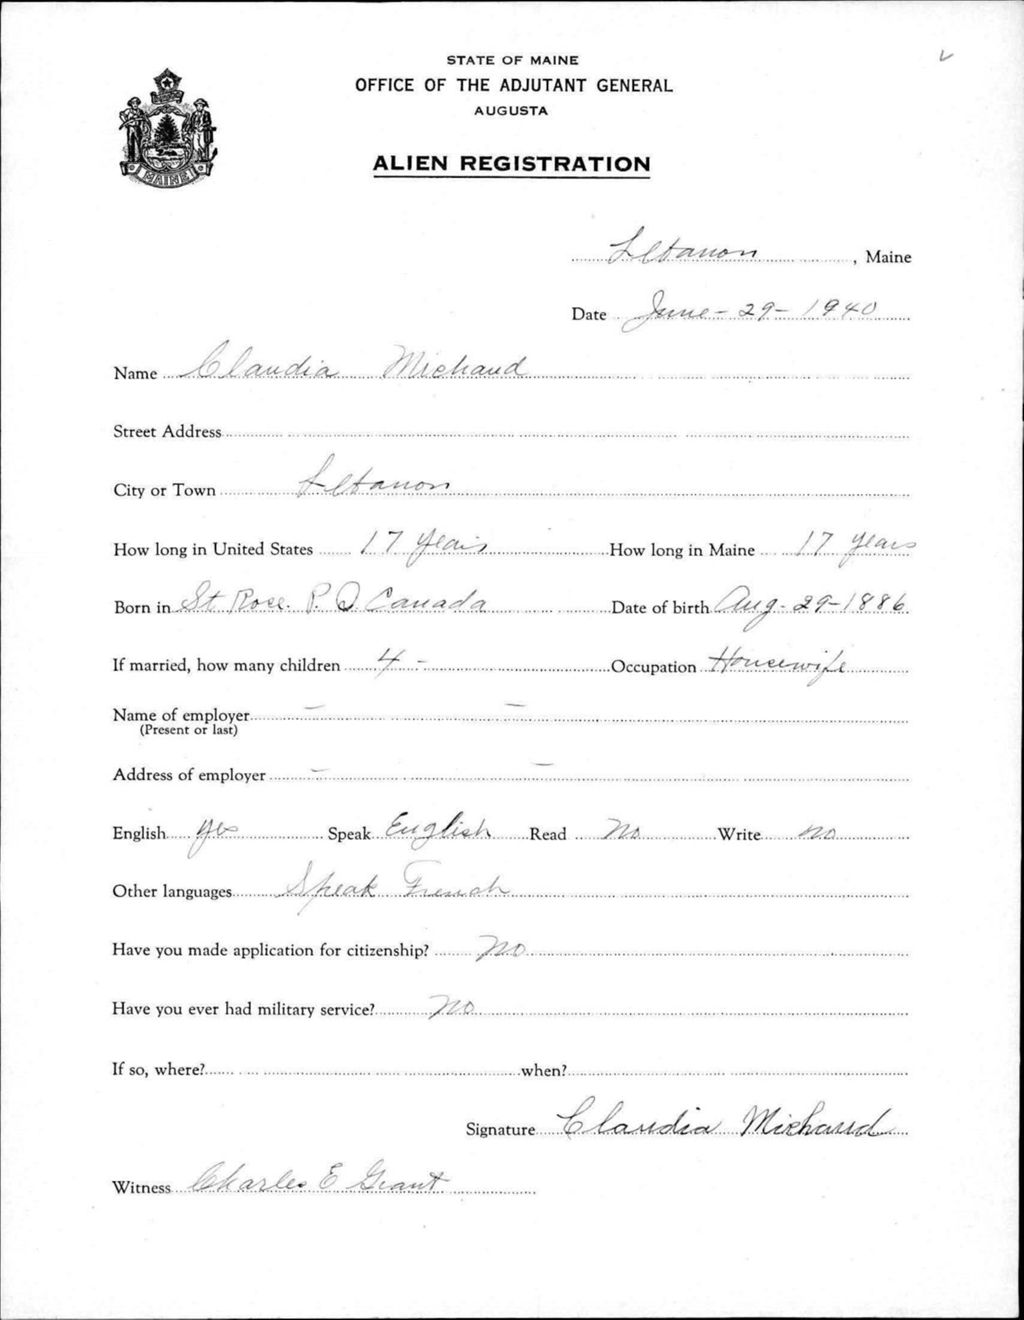 STATE OF MAINE
OFFICE OF THE ADJUTANT GENERAL
AUGUSTA
ALIEN REGISTRATION
MAINE
Lebanon, Maine
Date June - 29 - 1940
Name Claudia Michaud
Street Address
City or Town Lebanon
How long in United States 17 years How long in Maine 17 years
Born in St Rose. P. Q Canada Date of birth Aug - 29 - 1886
If married, how many children 4 - Occupation Housewife
Name of employer - -
(Present or last)
Address of employer - -
English yes Speak English Read no Write no
Other languages Speak French
Have you made application for citizenship? no
Have you ever had military service? no
If so, where? when?
Signature Claudia Michaud
Witness Charles E Grant